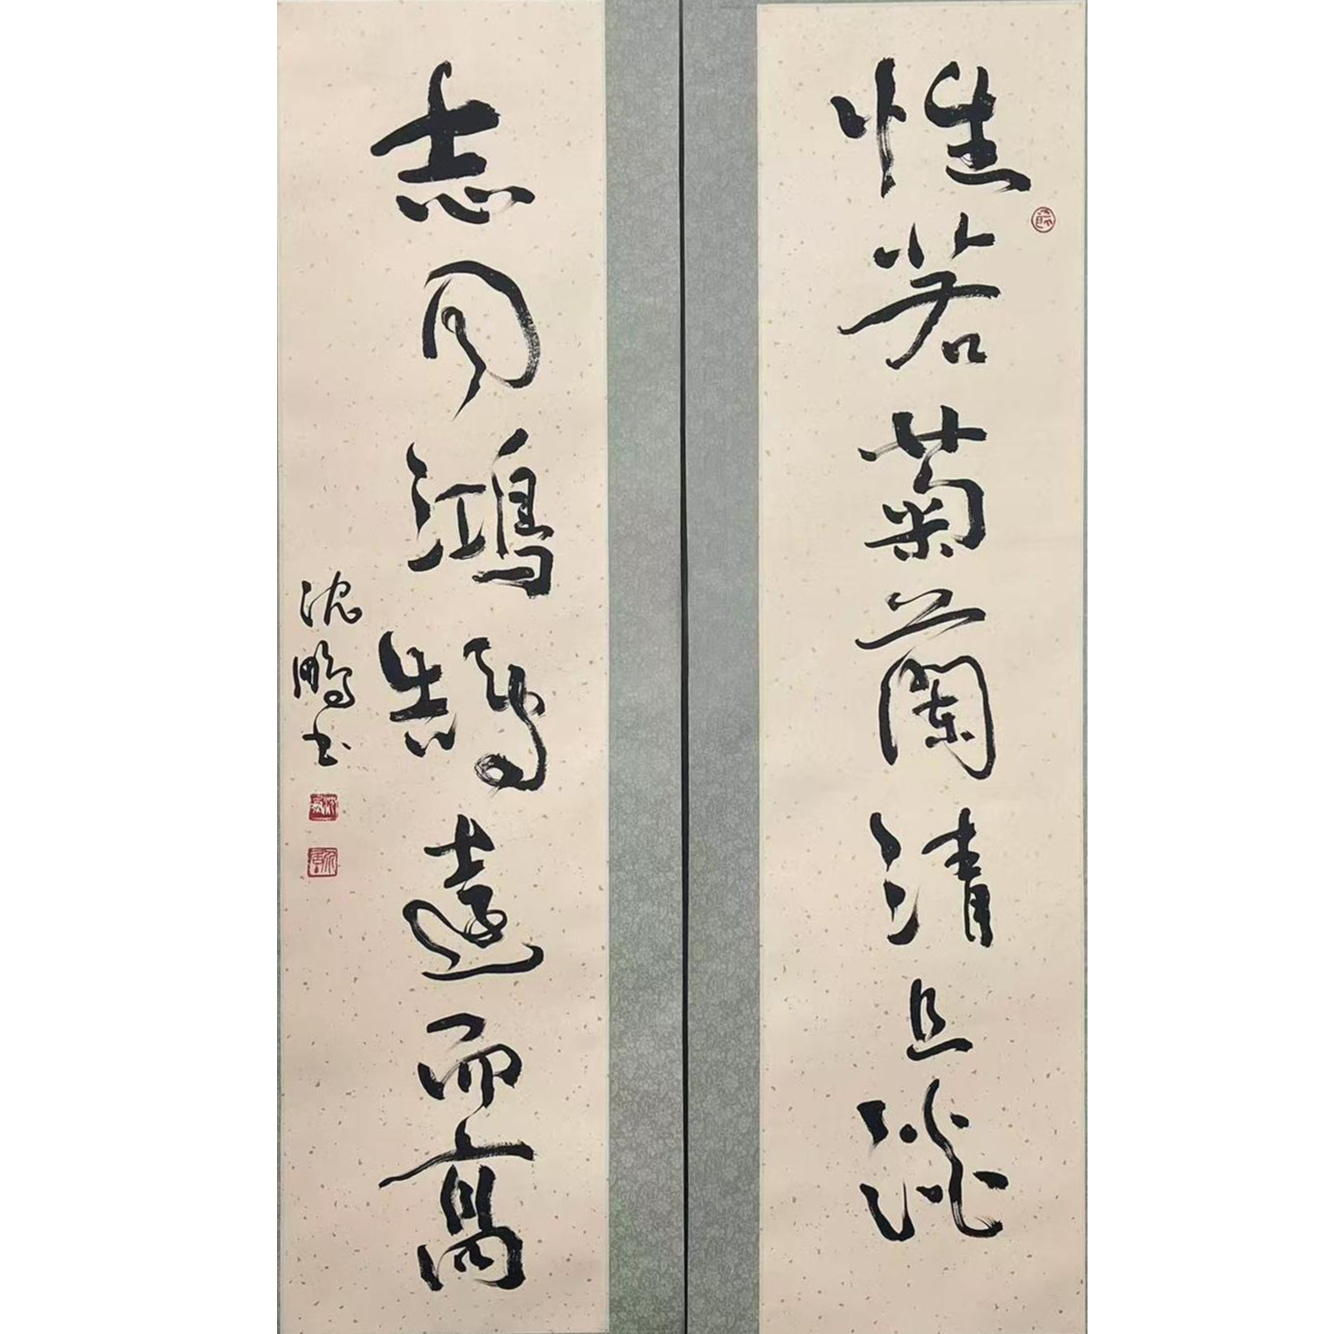 性若菊蘭清且淡
志同鴻鵠遠而高
沈鵬書